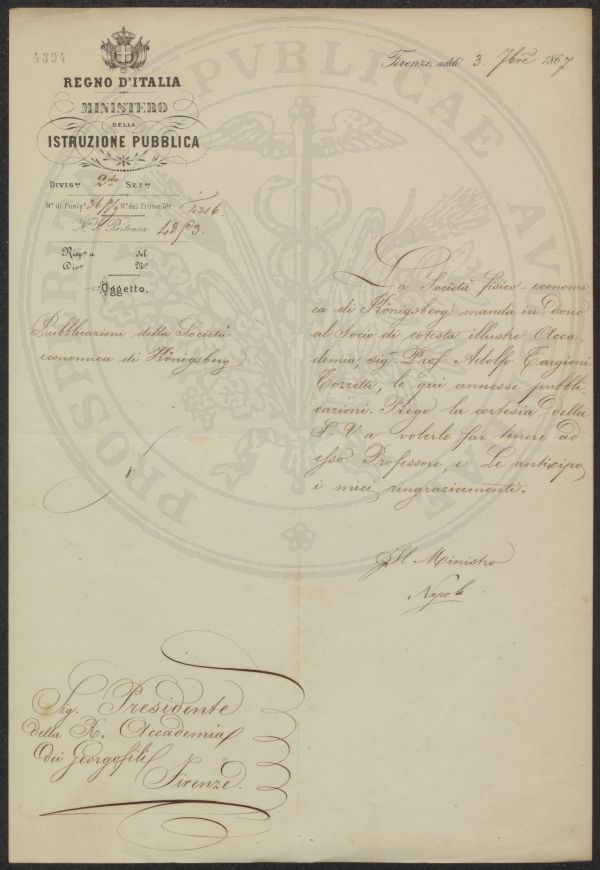 4394
Firenze, addì 3. 7bre 1867
REGNO D'ITALIA
MINISTERO
DELLA
ISTRUZIONE PUBBLICA
DIVISe 2da SEZe
No di Posize 36 No del Protoc. Gle
No di Partenza
Rispta a del
Dive No
Oggetto.
Pubblicazioni della Società
economica di Königsberg
La Società fisico-economi
ca di Königsberg manda in dono
al Socio di cotesta illustre Acca
demia, sigr Prof. Adolfo Targioni
Tozzetti, le qui annesse pubbli
cazioni. Prego la cortesia della
S. V. a volerle far tenere ad
esso Professore, e Le anticipo
i miei ringraziamenti.
Il Ministro
Sig. Presidente
della R. Accademia
dei Georgofili
Firenze.